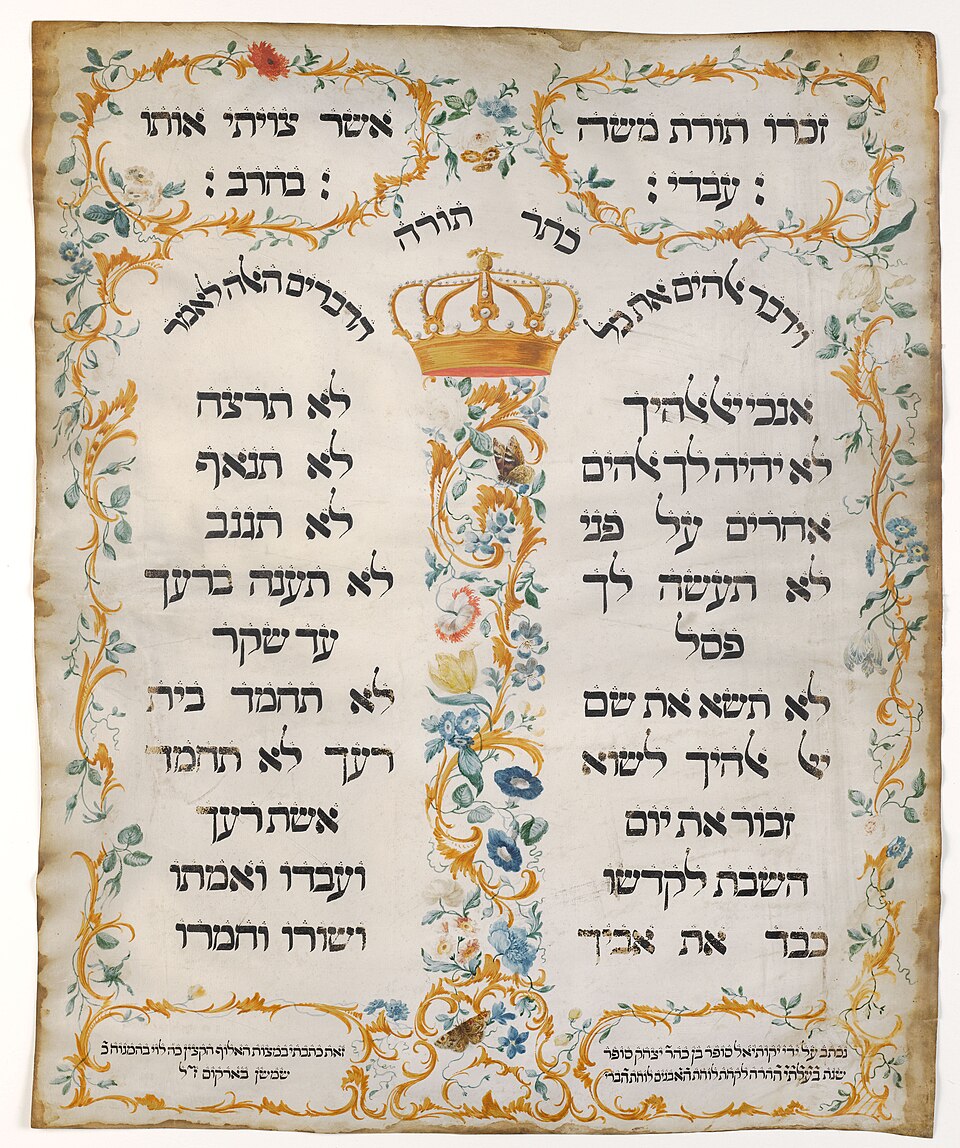 זכרו תורת משה
: עבדי :
אשר צויתי אותו
: בחרב :
כתר תורה
וידבר אלהים את כל
הדברים האלה לאמר
אנכי יי אלהיך
לא יהיה לך אלהים
אחרים על פני
לא תעשה לך
פסל
לא תשא את שם
יי אלהיך לשוא
זכור את יום
השבת לקדשו
כבד את אביך
לא תרצח
לא תנאף
לא תגנב
לא תענה ברעך
עד שקר
לא תחמד בית
רעך לא תחמד
אשת רעך
ועבדו ואמתו
ושורו וחמרו
נכתב על ידי יקותיאל סופר בן כהר יצחק סופר
שנת בעלתי ההרה לקחת לוחת האבנים לוחת הברי
זאת כתבתי במצות האלוף הקצין כה לוי בהמנוח כ
שמשן בארקום ז"ל